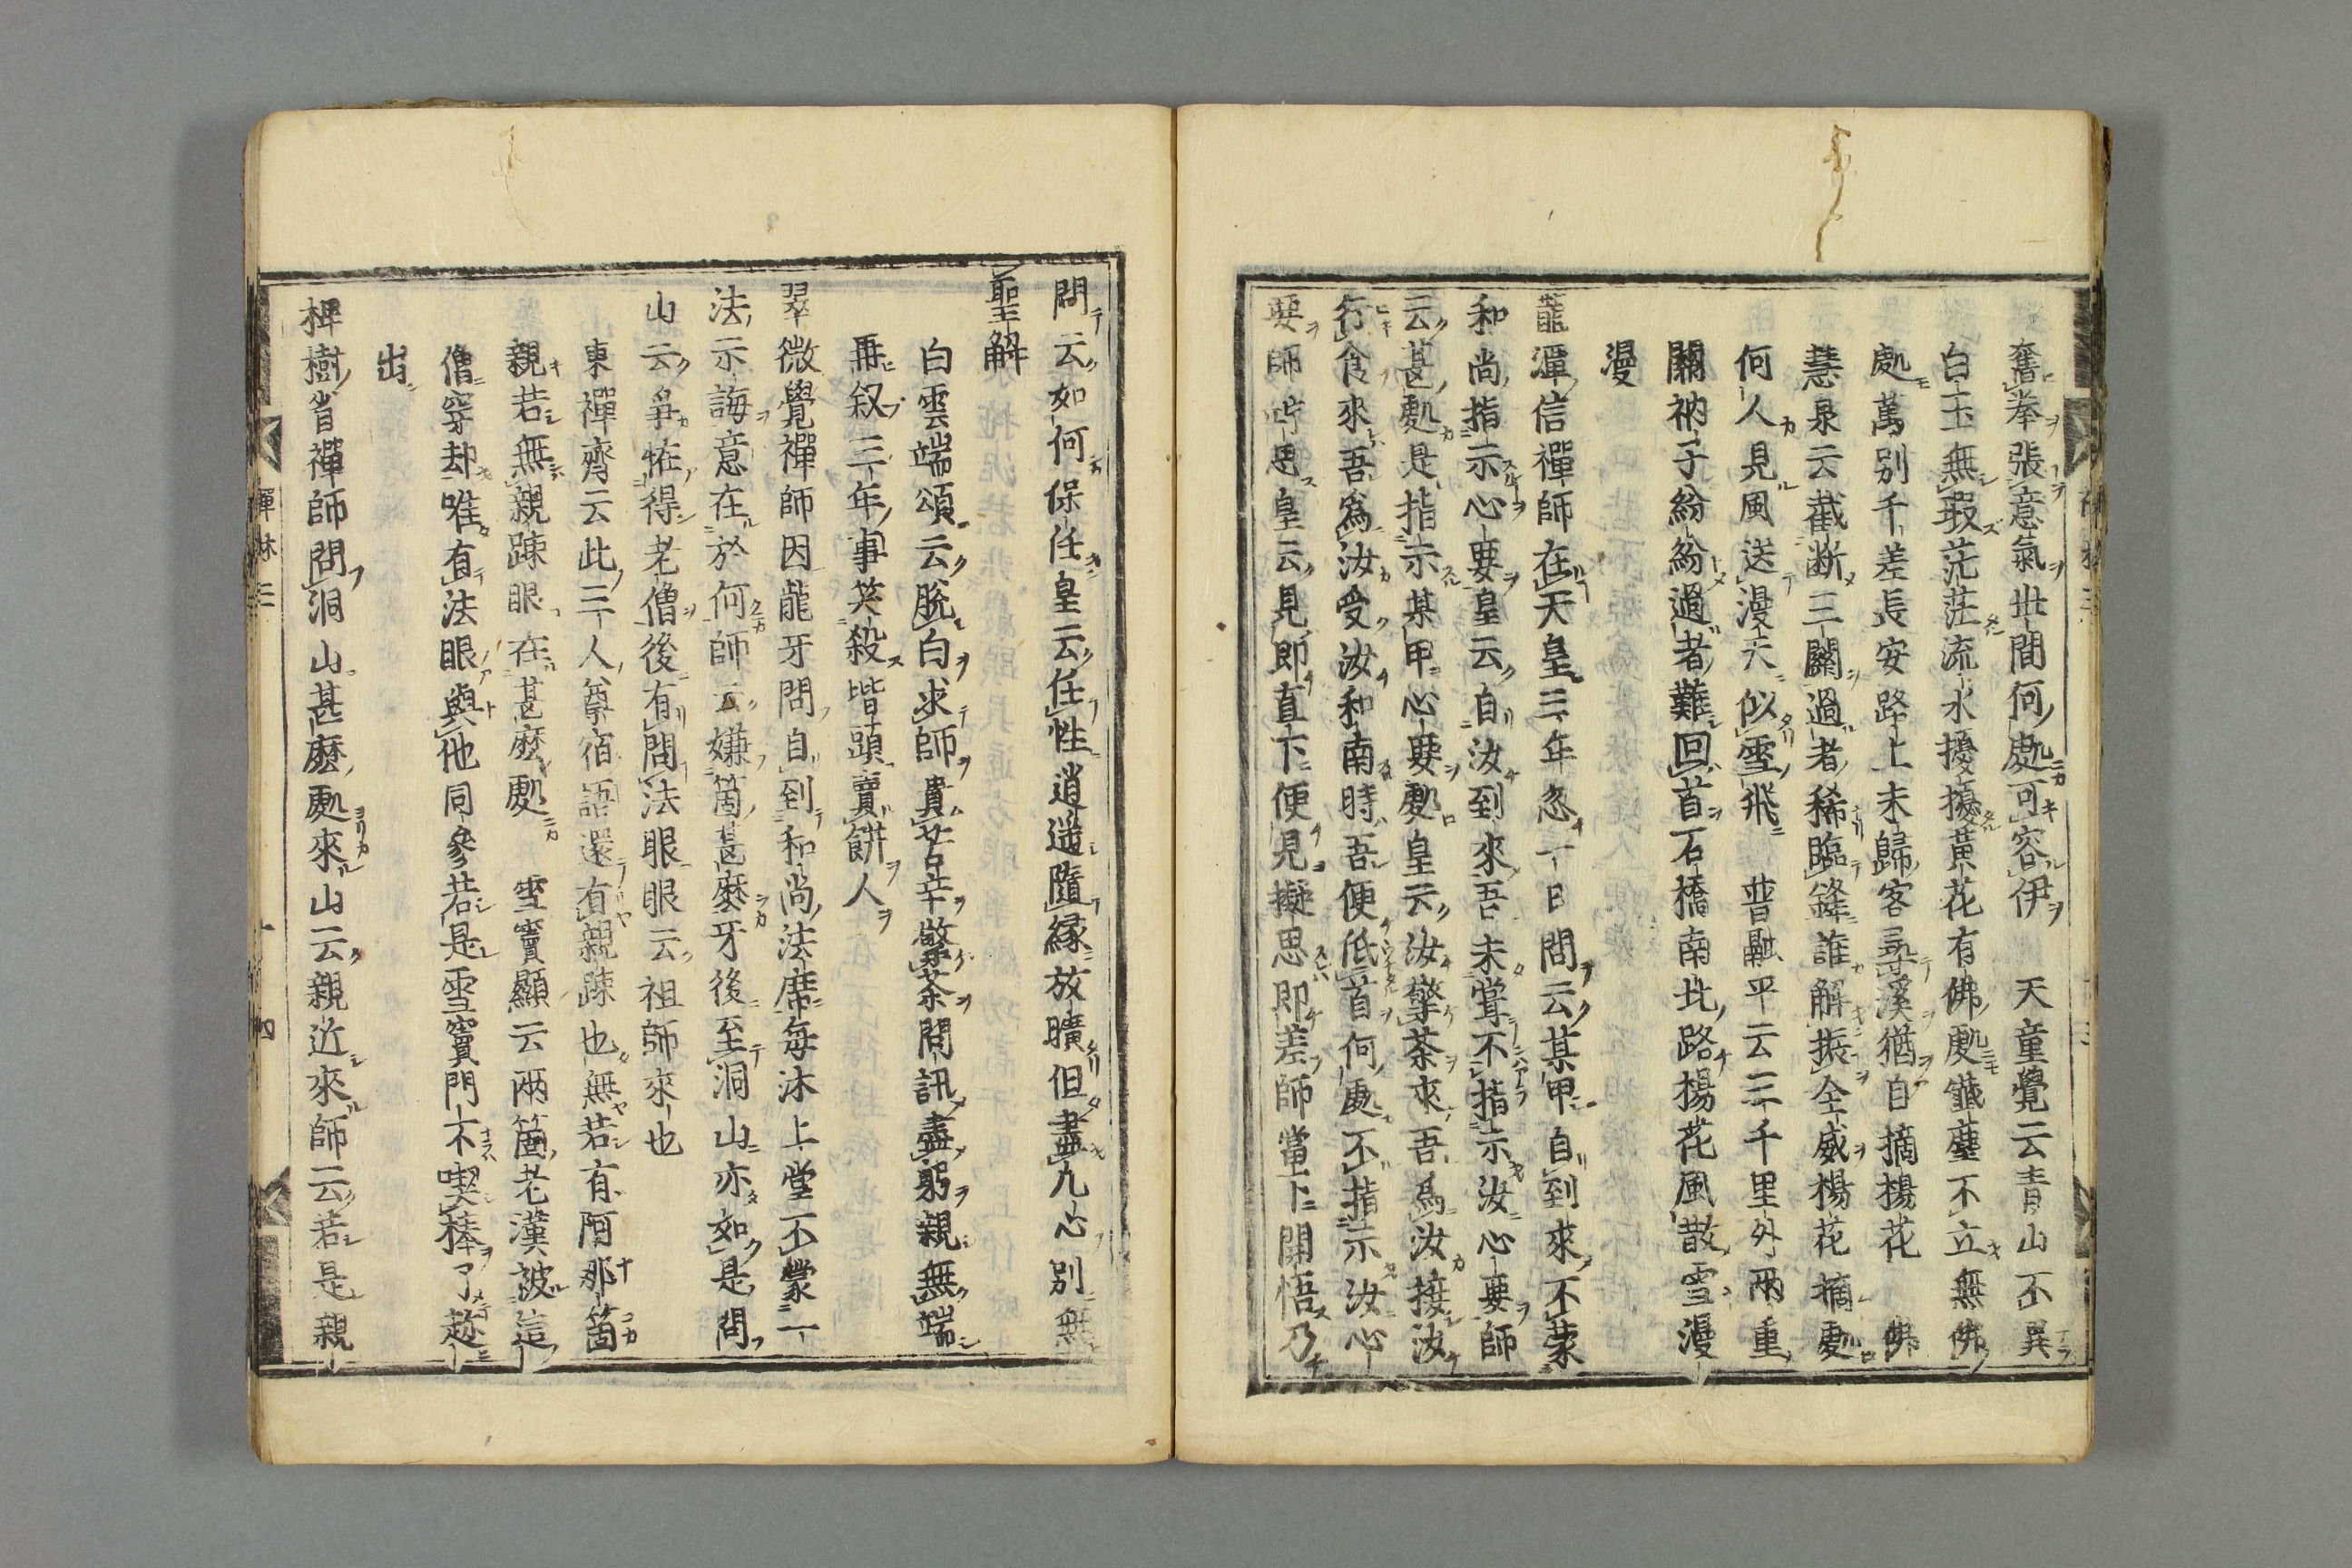 奮拳張意氣世間何處可容伊　天童覺云青山不異
白玉無瑕茫茫流水擾擾黃花有佛處纖塵不立無佛
處萬別千差長安路上未歸客尋溪猶自摘楊花　佛
慧泉云截断三關過者稀臨鋒誰解振全威楊花摘處
何人見風送漫天似雪飛　普融平云三千里外兩重
關衲子紛紛過者難回首石橋南北路楊花風散雪漫
漫
龍潭信禪師在天皇三年忽一日問云某甲自到來不蒙
和尚指示心要皇云自汝到來吾未嘗不指示汝心要師
云甚處是指示某甲心要處皇云汝擎茶來吾爲汝接汝
行食來吾爲汝受汝和南時吾便低首何處不指示汝心
要師竚思皇云見即直下便見擬思即差師當下開悟乃
問云如何保任皇云任性逍遥隨縁放曠但盡凡心別無
聖解
白雲端頌云脫白求師貴苦辛擎茶問訊盡躬親無端
再叙三年事笑殺堦頭賣餅人
翠微覺禪師因龍牙問自到和尚法席每沐上堂不蒙一
法示誨意在於何師云嫌箇甚麽牙後至洞山亦如是問
山云爭恠得老僧後有問法眼眼云祖師來也
東禪齊云此三人尊宿語還有親踈也無若有阿那箇
親若無親踈眼在甚麽處　雪竇顯云兩箇老漢被這
僧穿却唯有法眼與他同參若是雪竇門下喫棒了趂
出
椑樹省禪師問洞山甚麽處來山云親近來師云若是親
禪林三
十四